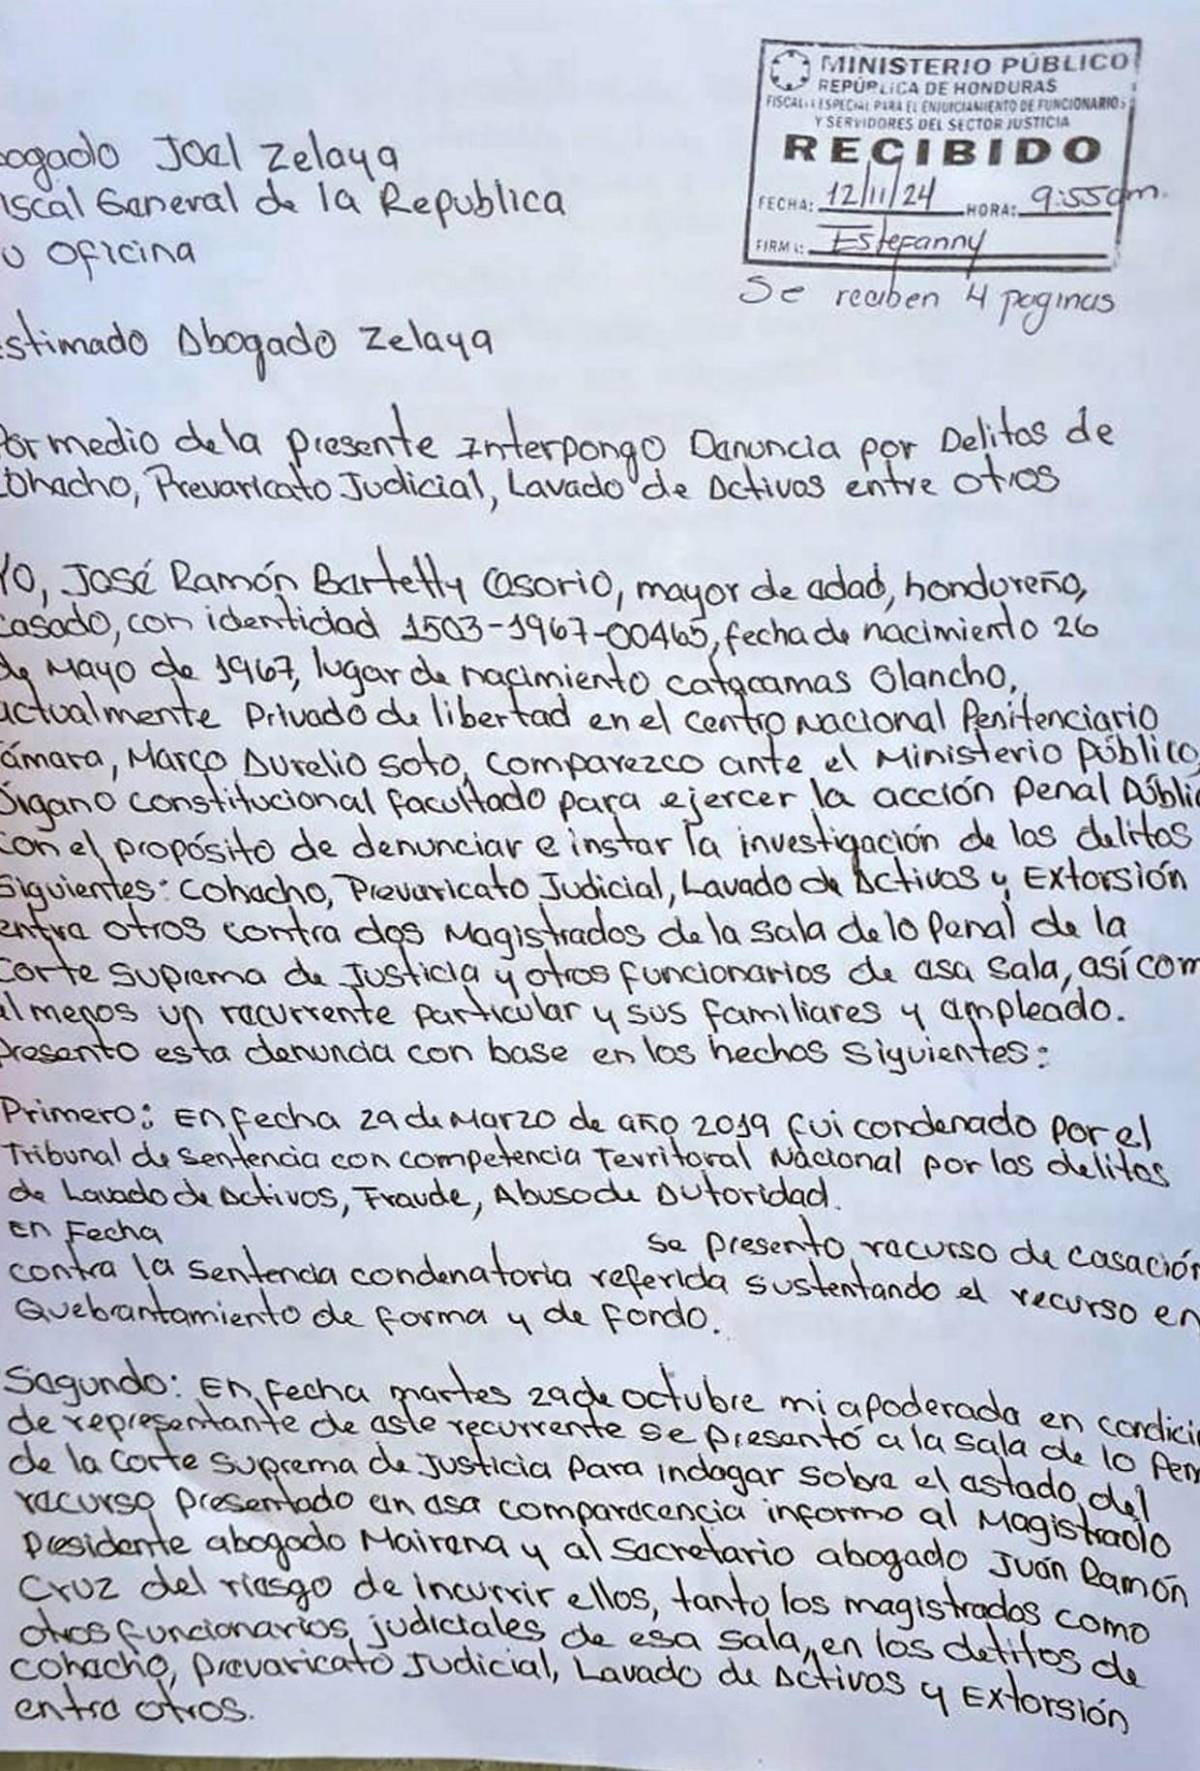 MINISTERIO PÚBLICO
REPÚBLICA DE HONDURAS
FISCALIA ESPECIAL PARA EL ENJUICIAMIENTO DE FUNCIONARIOS
Y SERVIDORES DEL SECTOR JUSTICIA
RECIBIDO
FECHA: 12/11/24 HORA: 9:55am.
FIRMA: Estefanny
Se reciben 4 paginas
bogado Joel Zelaya
iscal General de la Republica
u Oficina
stimado Abogado Zelaya
Por medio de la presente Interpongo Denuncia por Delitos de
Cohacho, Prevaricato Judicial, Lavado de Activos entre otros
Yo, José Ramón Bartetty Osorio, mayor de edad, hondureño,
casado, con identidad 1503-1967-00465, fecha de nacimiento 26
de Mayo de 1967, lugar de nacimiento catacamas Olancho,
actualmente Privado de libertad en el centro Nacional Penitenciario
Támara, Marco Aurelio Soto, Comparezco ante el Ministerio Público,
Órgano constitucional facultado para ejercer la acción Penal Públic
con el propósito de denunciar e instar la investigación de los delitos
Siguientes: Cohacho, Prevaricato Judicial, Lavado de Activos y Extorsión
entre otros contra dos Magistrados de la sala de lo Penal de la
Corte Suprema de Justicia y otros funcionarios de esa Sala, así com
al menos un recurrente particular y sus familiares y empleado.
Presento esta denuncia con base en los hechos Siguientes:
Primero: En fecha 29 de Marzo de año 2019 fui condenado por el
Tribunal de Sentencia con competencia Territoral Nacional por los delitos
de Lavado de Activos, Fraude, Abuso de Autoridad.
En Fecha se presento recurso de casación
contra la sentencia condenatoria referida sustentando el recurso en
Quebrantamiento de forma y de fondo.
Segundo: En fecha martes 29 de octubre mi apoderada en condici
de representante de este recurrente se presentó a la sala de lo Pen
de la Corte Suprema de Justicia para indagar sobre el estado, del
recurso presentado en esa comparecencia informo al Magistrado
Presidente abogado Mairena y al Secretario abogado Juán Ramón
Cruz del riesgo de incurrir ellos, tanto los magistrados como
otros funcionarios, judiciales de esa sala, en los delitos de
cohacho, Prevaricato Judicial, Lavado de Activos y Extorsión
entre otros.